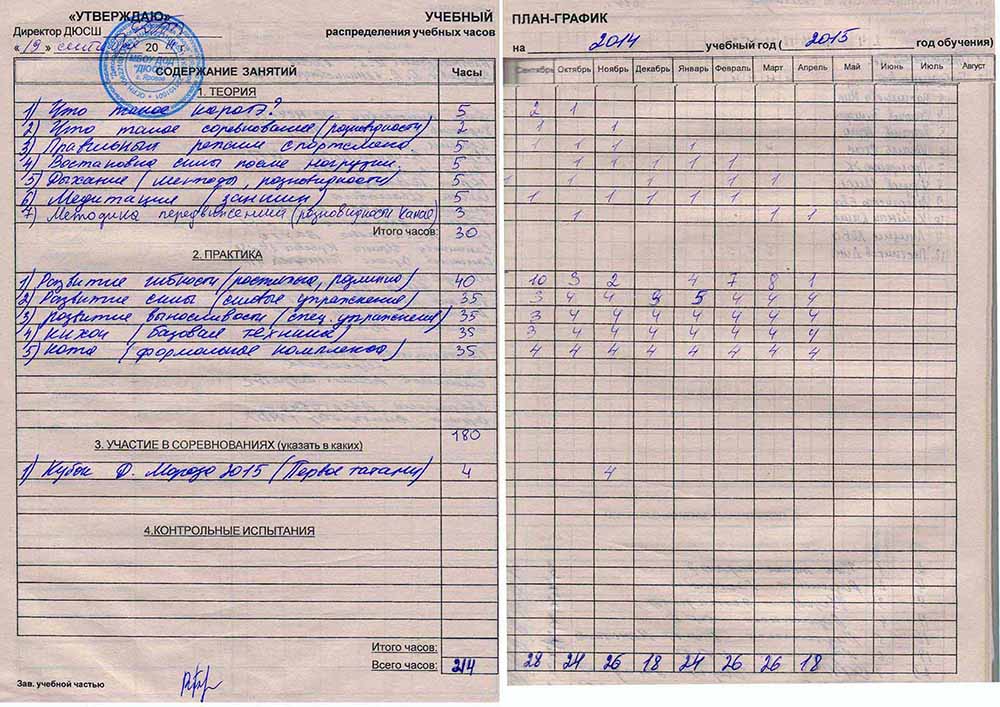 «УТВЕРЖДАЮ»
УЧЕБНЫЙ ПЛАН-ГРАФИК
Директор ДЮСШ
распределения учебных часов на 2014 учебный год ( 2015 год обучения)
« 19 » 20
СОДЕРЖАНИЕ ЗАНЯТИЙ Часы Сентябрь Октябрь Ноябрь Декабрь Январь Февраль Март Апрель Май Июнь Июль Август
1. ТЕОРИЯ
1) Что такое каратэ? 5 2 1
2) Что такое соревнование (разновидности) 2 1 1
3) Правильный режим спортсмена 5 1 1 1 1
4) Востановка силы после нагрузки. 5 1 1 1 1 1
5) Дыхание (методы, разновидности) 5 1 1 1 1 1
6) Медитация (заншин) 5 1 1 1 1 1
7) Методика передвижений (разновидности) 3 1 1 1
Итого часов: 30
2. ПРАКТИКА
1) Развитие гибкости (растяжка, разминка) 40 10 3 2 4 7 8 1
2) Развитие силы (силовые упражнения) 35 3 4 4 3 5 4 4 4
3) Развитие выносливости (спец. упражнения) 35 3 4 4 4 4 4 4 4
4) Кихон (базовая техника) 35 3 4 4 4 4 4 4 4
5) Ката (формальное комплексы) 35 4 4 4 4 4 4 4 4
180
3. УЧАСТИЕ В СОРЕВНОВАНИЯХ (указать в каких)
1) Кубок Д. Мороза 2015 (Первое татами) 4 4
4.КОНТРОЛЬНЫЕ ИСПЫТАНИЯ
Итого часов:
Всего часов: 214 28 24 26 18 24 26 26 18
Зав. учебной частью